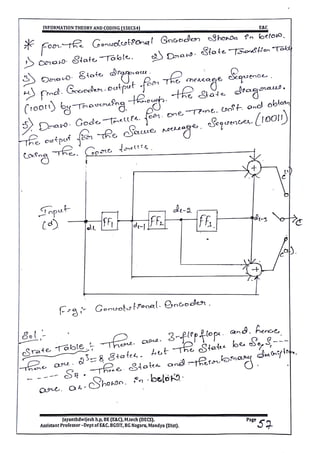 INFORMATION THEORY AND CODING (15EC54) E&C
* For the Convolutional Encoder shown in below.
1) Draw State Table. 2) Draw State Transition Table
3) Draw State diagram.
4) Find Encoder output for the message Sequence
(10011) by Traversing through the State diagram.
5) Draw Code Trellis for one Time unit and obtain
The output for the Same message Sequence (10011)
Using the Code trellis.
Input
(d)
d1
FF1
dl-1
FF2
dl-2
FF3
dl-3
+
+
C(1)
C(2)
C
Fig:- Convolutional Encoder.
Sol:-
State Table:- There are 3-flipflops and hence
There are 2^3=8 States. Let The State be S0, S1
----- S7. These States and their binary
are as Shown in below.
Jayanthdwijesh h.p, BE (E&C), M.tech (DECS),
Assistant Professor - Dept of E&C. BGSIT, BG Nagara, Mandya (Dist).
Page 57